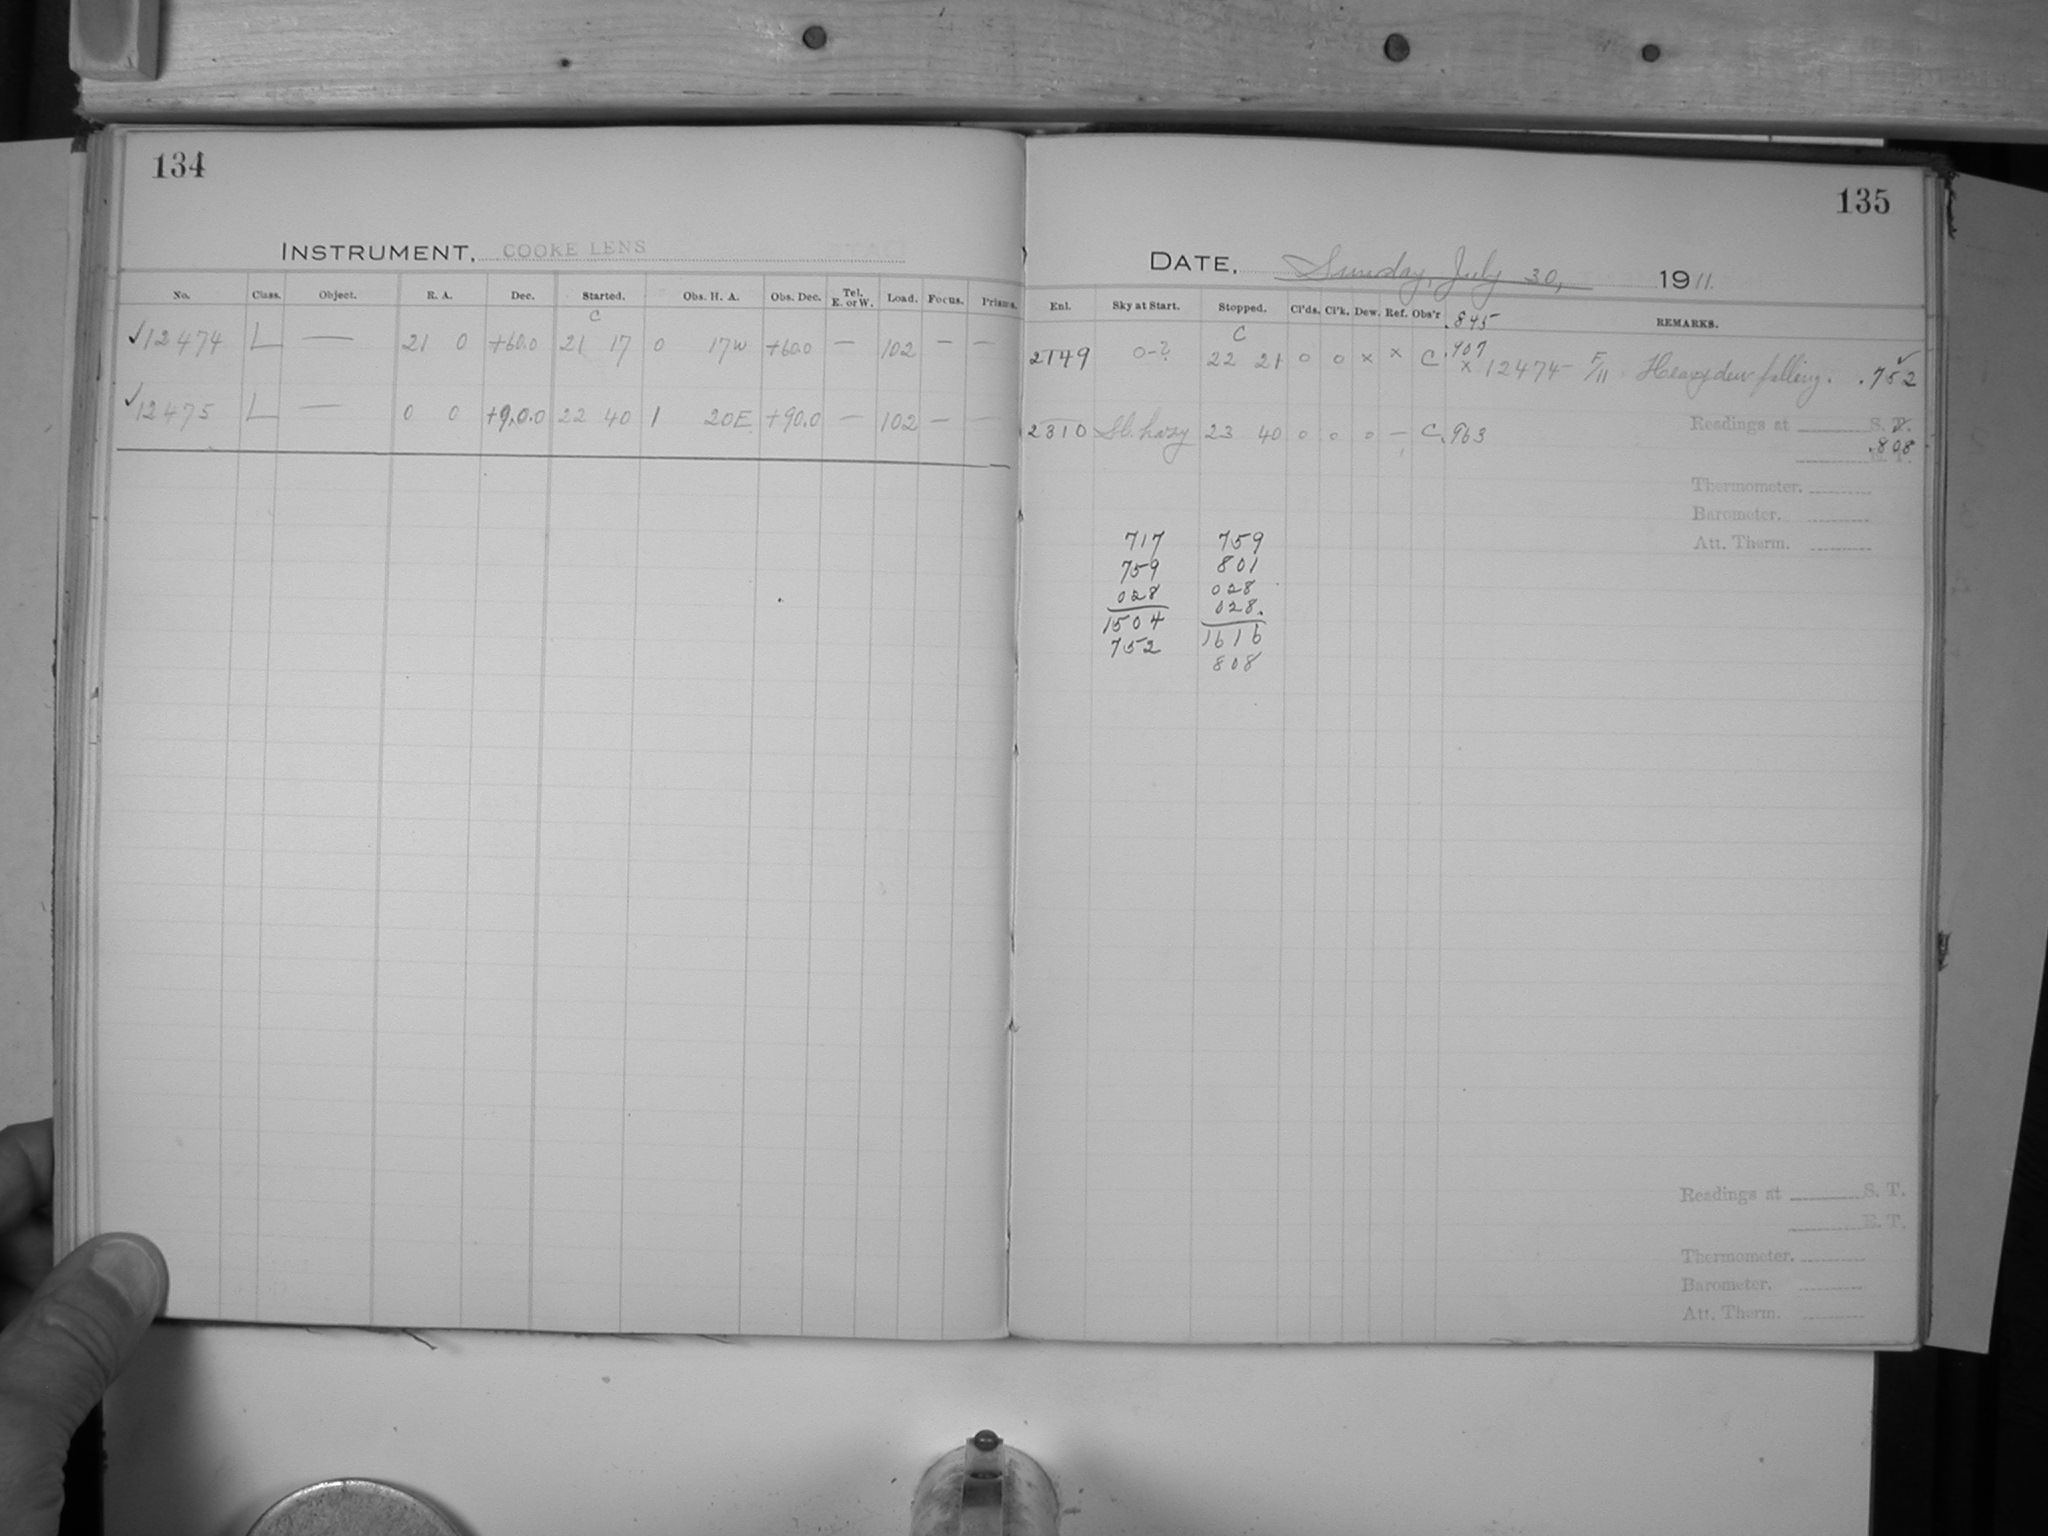 134
INSTRUMENT, COOKE LENS
No. Class. Object. R. A. Dec. Started. Obs. H. A. Obs. Dec. Tel. E. or W. Load. Focus. Prisms.
C
✓12474 L — 21 0 +60.0 21 17 0 17W +60.0 — 102 — —
✓12475 L — 0 0 +90.0 22 40 1 20E +90.0 — 102 — —
135
DATE, Sunday, July 30, 1911.
Enl. Sky at Start. Stopped. Cl'ds. Cl'k. Dew. Ref. Obs'r REMARKS.
.845
C
2149 0-? 22 21 0 0 x x C .907 x 12474- F/11 Heavy dew falling. .752 ✓
Readings at S. T.
2310 Sl. hazy 23 40 0 0 0 — C .963 .808
Thermometer.
Barometer.
Att. Therm.
717 759
759 801
028 028
1504 028.
752 1616
808
Readings at S. T.
E. T.
Thermometer.
Barometer.
Att. Therm.